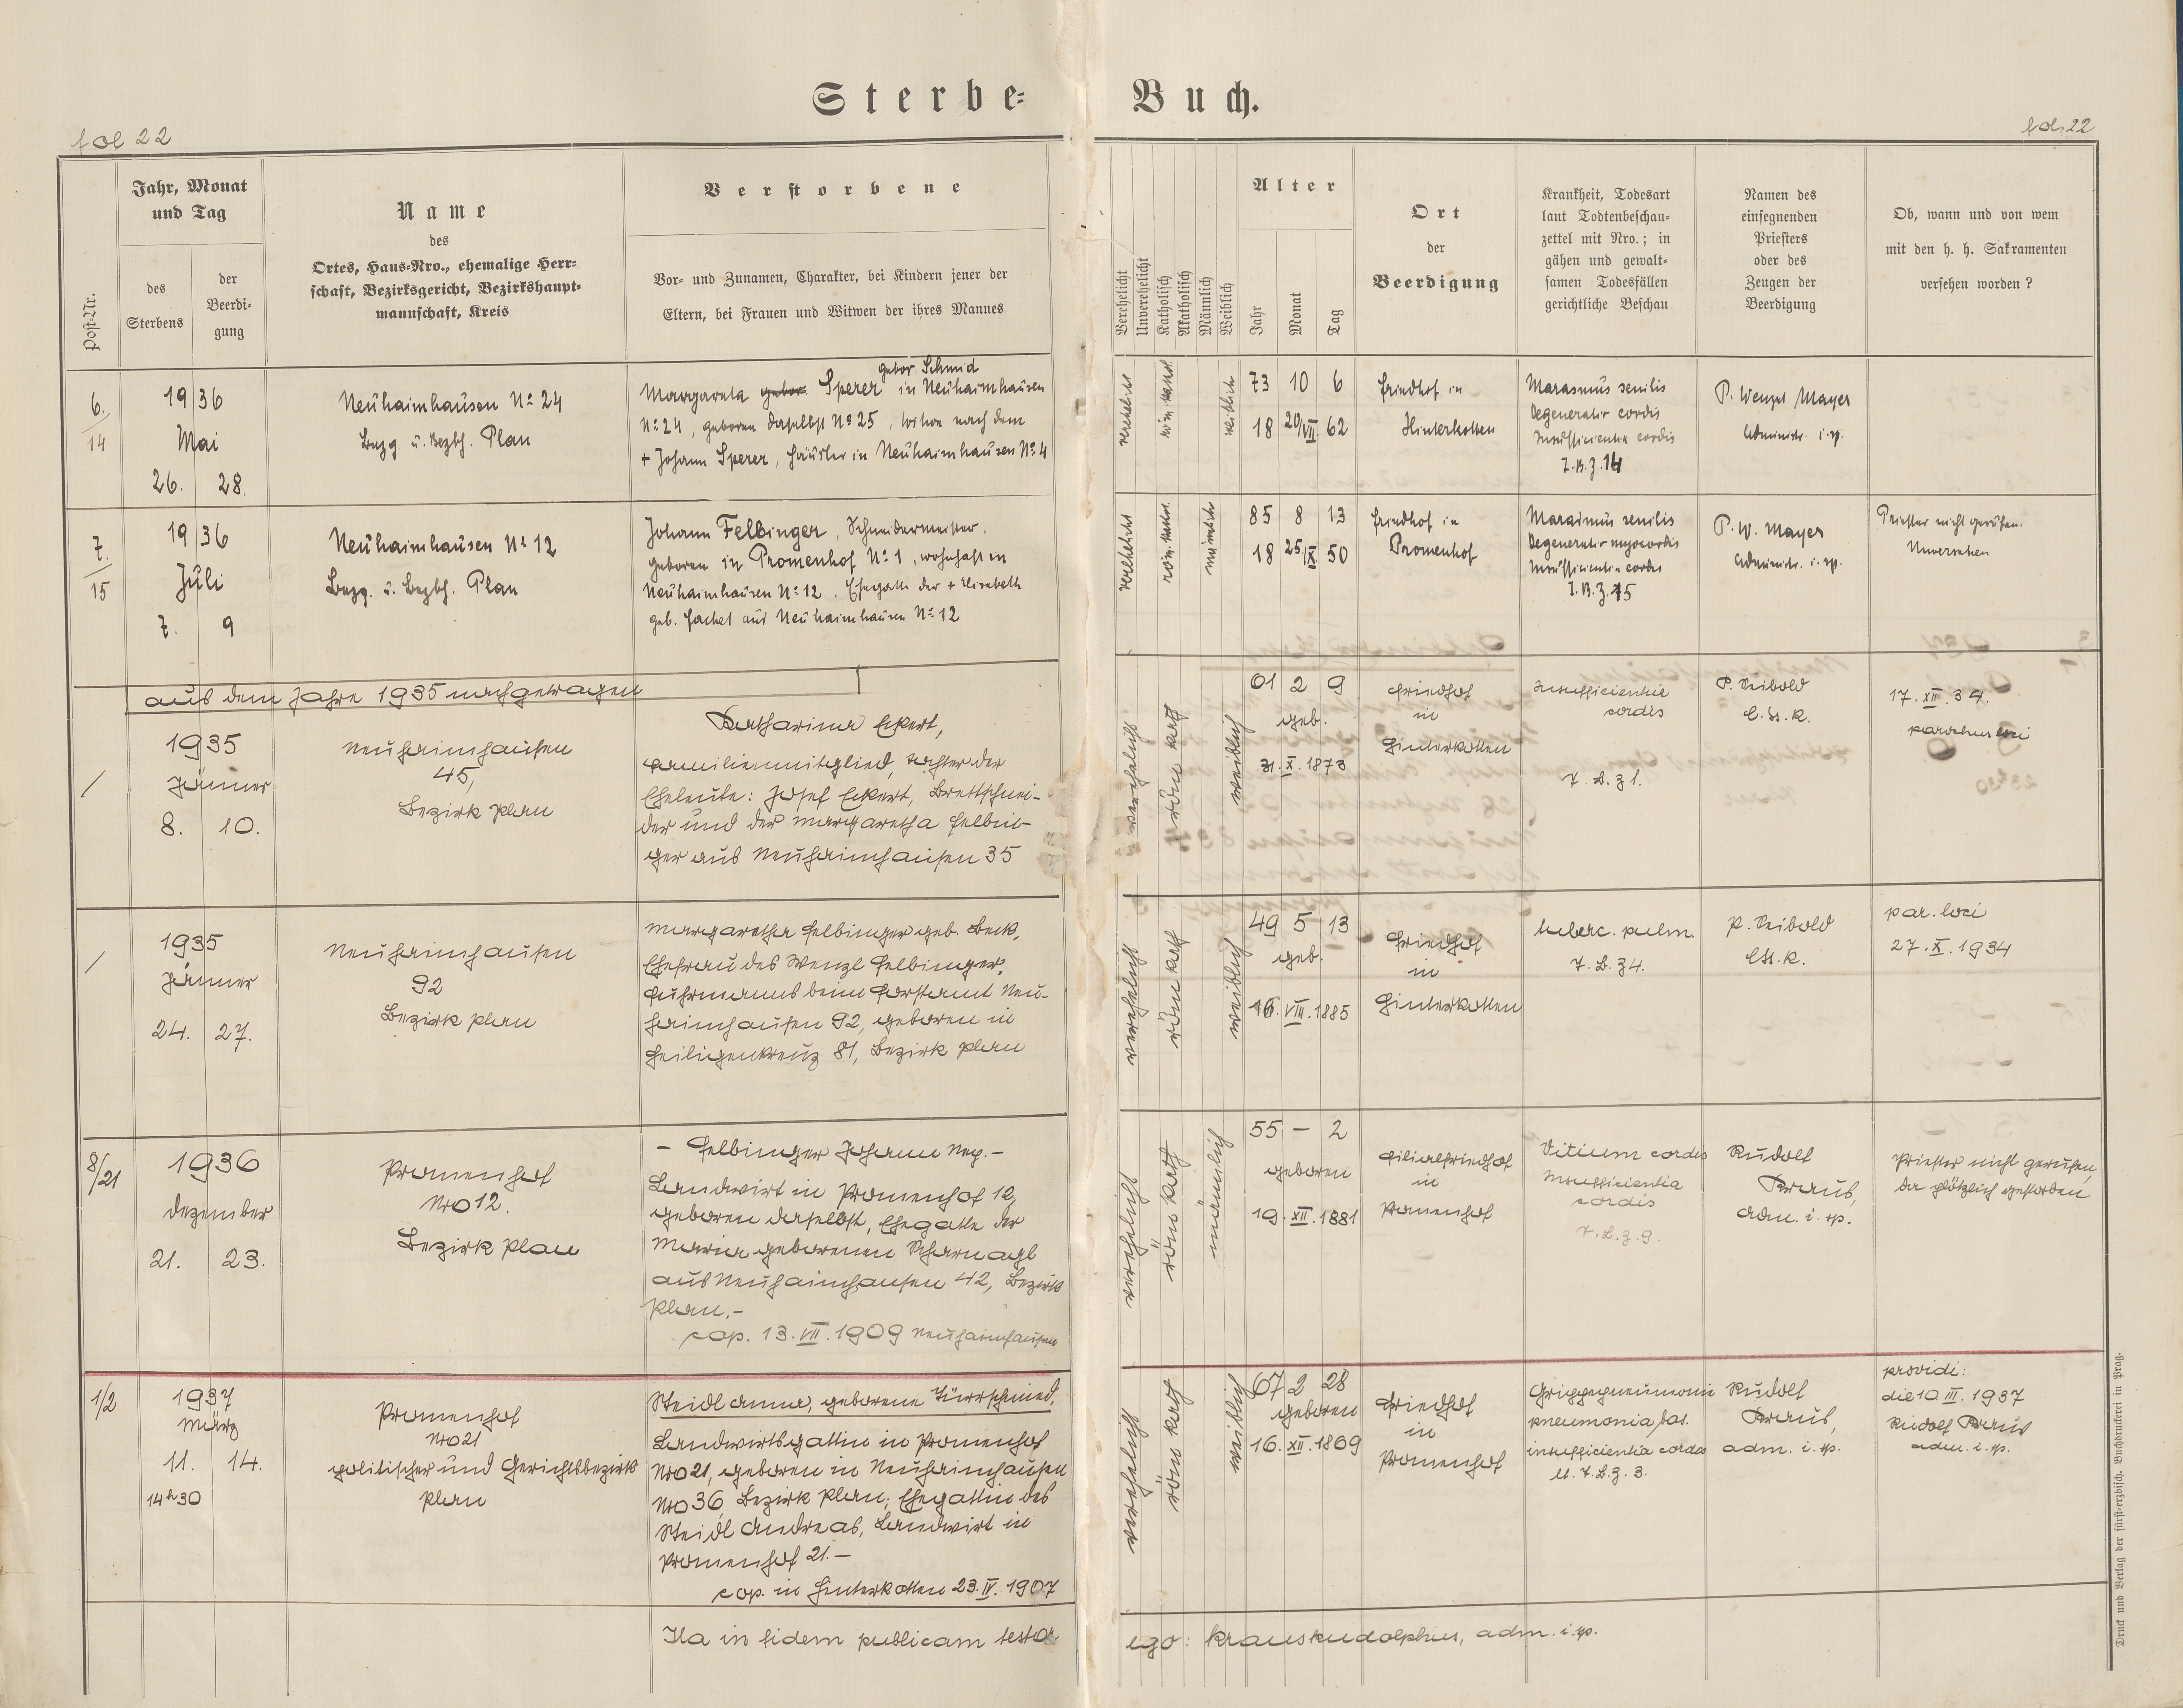 Sterbe= Buch.
fol 22
fol. 22
Post-Nr.
Jahr, Monat
und Tag
des
Sterbens
der
Beerdi-
gung
Name
des
Ortes, Haus-Nro., ehemalige Herr-
schaft, Bezirksgericht, Bezirkshaupt-
mannschaft, Kreis
Verstorbene
Vor- und Zunamen, Charakter, bei Kindern jener der
Eltern, bei Frauen und Witwen der ihres Mannes
Verehelicht
Unverehelicht
Katholisch
Akatholisch
Männlich
Weiblich
Alter
Jahr
Monat
Tag
Ort
der
Beerdigung
Krankheit, Todesart
laut Todtenbeschau-
zettel mit Nro.; in
gähen und gewalt-
samen Todesfällen
gerichtliche Beschau
Namen des
einsegnenden
Priesters
oder des
Zeugen der
Beerdigung
Ob, wann und von wem
mit den h. h. Sakramenten
versehen worden?
6.
14
1936
Mai
26. 28.
Neuhaimhausen No 24
Bezg u. Bezbh. Plan
gebor. Schmid
Margareta gebor. Sperer in Neuhaimhausen
No 24, geboren daselbst No 25, Witwe nach dem
+ Johann Sperer, Häusler in Neuhaimhausen No 4
verehelicht
röm. kathol.
weiblich
73 10 6
18 20/VII. 62
Friedhof in
Hinterkotten
Marasmus senilis
Degeneratio cordis
Insufficientia cordis
T. B. Z. 14
P. Wenzel Mayer
Administr. i. sp.
7.
15
1936
Juli
7. 9
Neuhaimhausen No 12
Bezg. u. Bezbh. Plan
Johann Felbinger, Schneidermeister,
geboren in Promenhof No 1, wohnhaft in
Neuhaimhausen No 12. Ehegatte der + Elisabeth
geb. Hackel aus Neuhaimhausen No 12
verehelicht
röm. kathol.
männlich
85 8 13
18 25./IX. 50
Friedhof in
Promenhof
Marasmus senilis
Degeneratio myocordis
Insufficientia cordis
T. B. Z. 15
P. W. Mayer
Administr. i. sp.
Priester nicht gerufen.
Unversehen
aus dem Jahre 1935 nachgetragen
/
1935
Jänner
8. 10.
Neuhaimhausen
45,
Bezirk Plan
Katharina Eckert,
Familienmitglied, Tochter der
Eheleute: Josef Eckert, Brettschnei-
der und der Margaretha Felbin-
ger aus Neuhaimhausen 35
röm kath
weiblich
61 2 9
geb.
31. X. 1873
Friedhof
in
Hinterkotten
Insufficientia
cordis
T. B. Z 1.
P. Seibold
C. Ss. R.
17. XII. 34.
parochus loci
/
1935
Jänner
24. 27.
Neuhaimhausen
92
Bezirk Plan
Margaretha Felbinger geb. Beck,
Ehefrau des Wenzl Felbinger,
Fuhrmanns beim Forstamt Neu-
haimhausen 92, geboren in
Heiligenkreuz 81, Bezirk Plan
verehelicht
röm kath
weiblich
49 5 13
geb.
VIII. 1885
Friedhof
in
Hinterkotten
tuberc. pulm.
T. B. Z 4.
P. Seibold
CSs. R.
par. loci
27. X. 1934
8/21
1936
Dezember
21. 23.
Promenhof
Nro 12.
Bezirk Plan
- Felbinger Johann Nep. -
Landwirt in Promenhof 12,
geboren daselbst, Ehegatte der
Maria geborenen Scharnagl
aus Neuhaimhausen 42, Bezirk
Plan. -
cop. 13. VII. 1909 Neuhaimhausen
verehelicht
röm kath
männlich
55 - 2
geboren
19. XII. 1881
Filialfriedhof
in
Promenhof
Vitium cordis
Insufficientia
cordis
T. B. Z. 9.
Rudolf
Kraus,
Adm. i. sp.
Priester nicht gerufen,
da plötzlich gestorben
1/2
1937
März
11. 14.
14h30
Promenhof
Nro 21
politischer und Gerichtsbezirk
Plan
Steidl Anna, geborene Türrschmied,
Landwirtsgattin in Promenhof
Nro 21, geboren in Neuhaimhausen
Nro 36, Bezirk Plan; Ehegattin des
Steidl Andreas, Landwirt in
Promenhof 21. -
cop. in Hinterkotten 23. IV. 1907
verehelicht
röm kath
weiblich
67 2 28
geboren
16. XII. 1869
Friedhof
in
Promenhof
Grippepneumonie
pneumonia bas.
insufficientia cordis
T. B. Z. 3.
Rudolf
Kraus,
adm. i. sp.
providi:
die 10 III. 1937
Rudolf Kraus
adm. i. sp.
Ita in fidem publicam testor
ego: Kraus Rudolphus, adm. i. sp.
Druck und Verlag der fürst-erzbisch. Buchdruckerei in Prag.